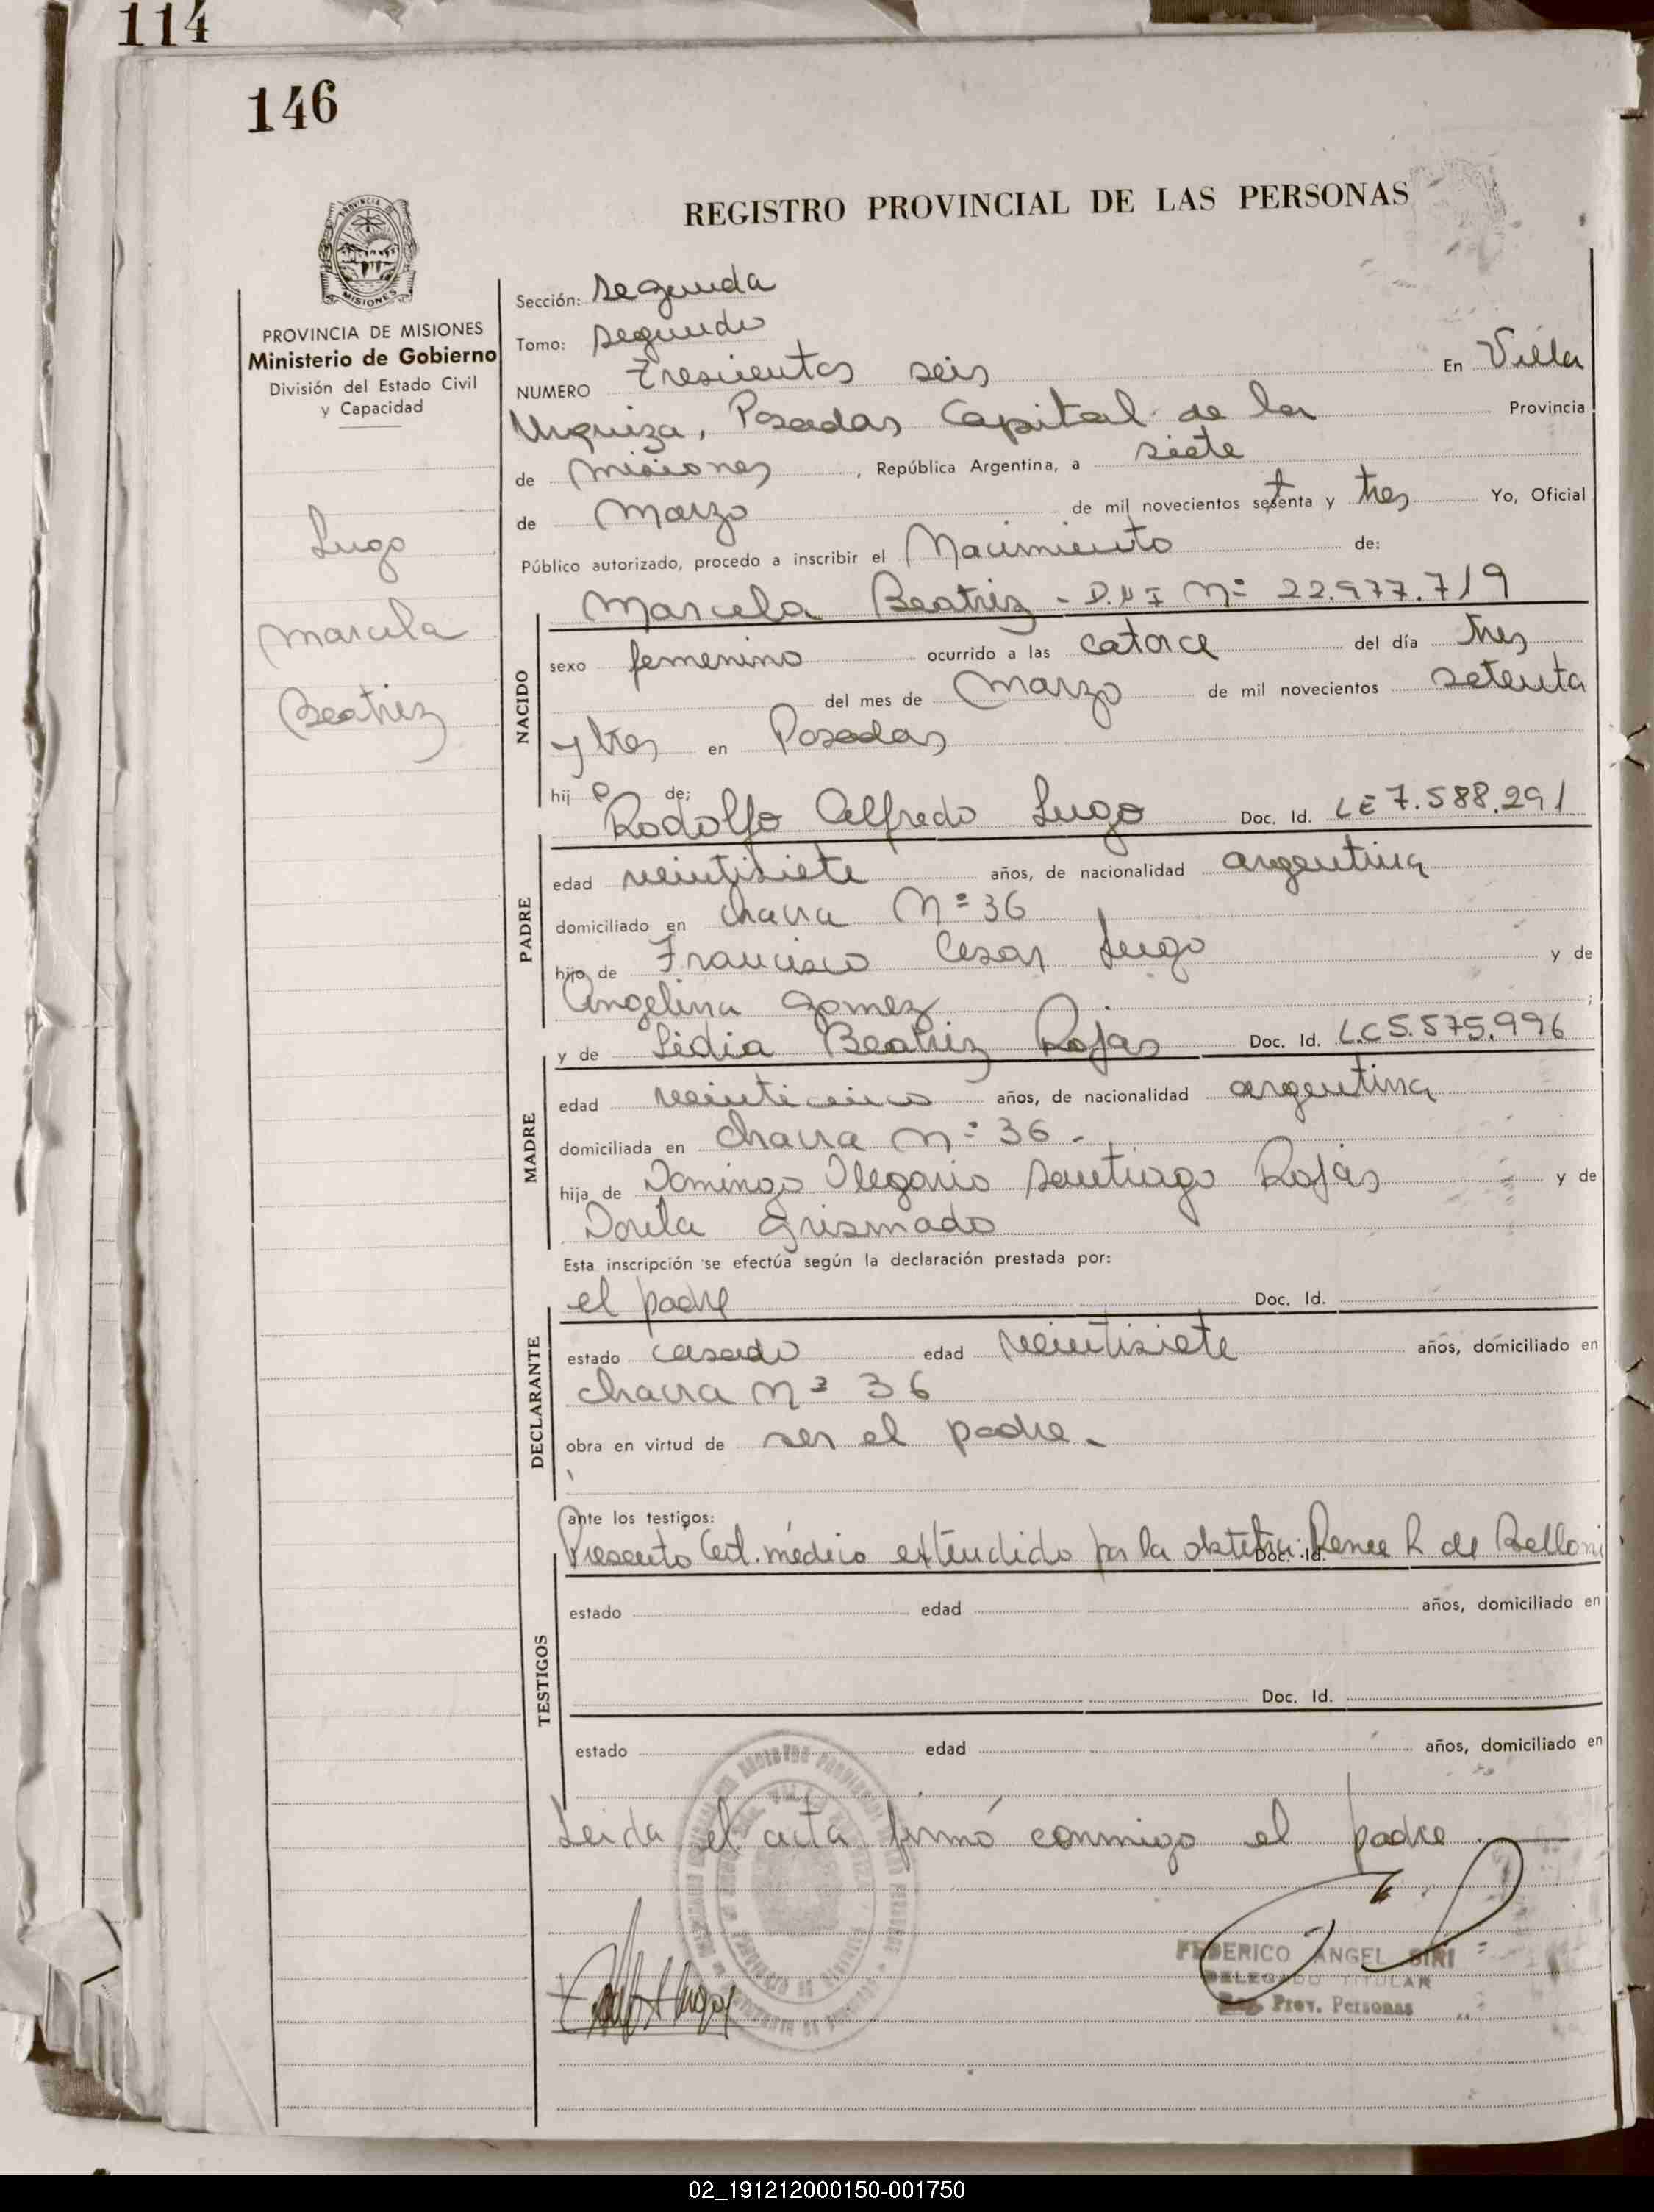 114
146
REGISTRO PROVINCIAL DE LAS PERSONAS
PROVINCIA DE MISIONES
Ministerio de Gobierno
División del Estado Civil
y Capacidad
Lugo
Marcela
Beatriz
Sección: Segunda
Tomo: Segundo
NUMERO Trescientos seis En Villa
Urquiza, Posadas Capital de la Provincia
de Misiones, República Argentina, a siete
de Marzo de mil novecientos setenta y tres Yo, Oficial
Público autorizado, procedo a inscribir el Nacimiento de:
Marcela Beatriz - D.N I Nº 22.977.719
NACIDO
sexo femenino ocurrido a las catorce del día tres
del mes de Marzo de mil novecientos setenta
y tres en Posadas
hij a de:
Rodolfo Alfredo Lugo Doc. Id. LE 7.588.291
PADRE
edad veintisiete años, de nacionalidad argentina
domiciliado en chacra Nº 36
hijo de Francisco Cesar Lugo y de
Angelina Gomez ;
y de Lidia Beatriz Rojas Doc. Id. L.C 5.575.996
MADRE
edad veinticinco años, de nacionalidad argentina
domiciliada en chacra Nº 36 -
hija de Domingo Olegario Santiago Rojas y de
Dorila Grismado
Esta inscripción se efectúa según la declaración prestada por:
el padre Doc. Id.
DECLARANTE
estado casado edad veintisiete años, domiciliado en
chacra Nº 36
obra en virtud de ser el padre.
ante los testigos:
Presento Cert. médico extendido por la obstetra: Renee R de Belloni Doc. Id.
TESTIGOS
estado edad años, domiciliado en
Doc. Id.
estado edad años, domiciliado en
Leida el acta firmó conmigo el padre.
FEDERICO ANGEL SIRI
DELEGADO TITULAR
Reg. Prov. Personas
02_191212000150-001750